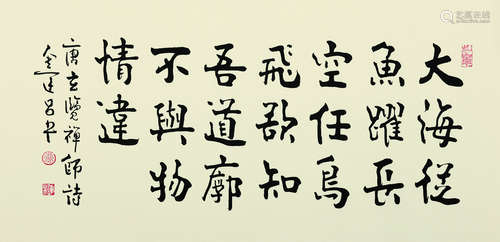 大海從
魚躍長
空任鳥
飛欲知
吾道廓
不與物
情違
唐玄覽禪師詩
金運昌书